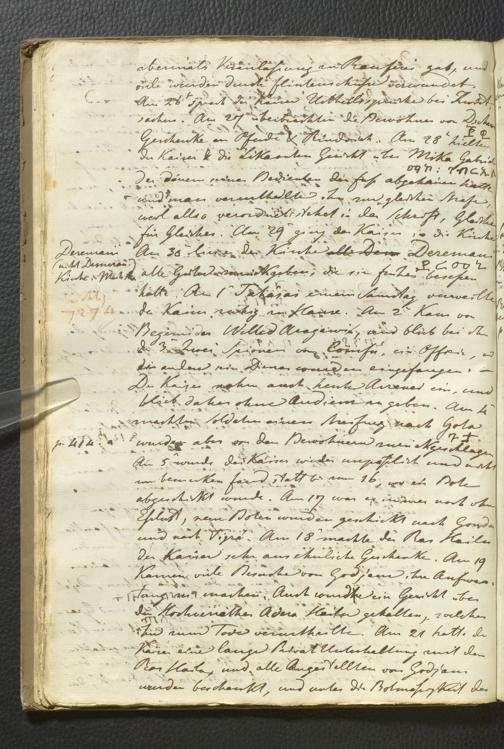 abermals Veranlassung zu Raufen gab, und
viele wurden durch Flintenschüsse verwundet
Am 26t sprach der Kaiser Urtheilssprüche bei
sachen. Am 27 überbrachten die Bewohner von
Geschenke an & Rindvieh. Am 28 hielten
der Kaiser & die Likaonten Gericht über Mika Gabriel
der einem Bedienten den Fuß abgehauen hatte
und man verurtheilte ihn zur gleichen Strafe,
weil also verordnet stehet in der Schrift, Gleiches
für Gleiches. Am 29 ging der Kaiser in die Kirche
Deremau
Am 30 der Kirche Deremau
(nicht
Kirche
alle Güter zurückgeben, die sie früher besessen
hatte. Am 1 Tahasas einem Samstag verweilte
7274
der Kaiser ruhig zu Hause. Am 2 kam von
Begemder Welled Aragawi, und blieb bei ihm
d. 3 Zwei Spionen von ein Offizir, und
die andern ein Diener wurden eingefangen. –
Der Kaiser nahm auch heute Arzenei ein, und
blieb daher ohne Audienz zu geben. Am 4
machten Soldaten einen Streifzug nach Gola
p. 414
wurden aber von den Bewohnern zurückgeschlagen
Am 5 wurde der Kaiser wieder unpäßlich und nichts
zu bemerken fand statt bis zum 16, wo ein Bote
abgeschickt wurde. Am 17 war er immer noch ohne
Eßlust, neue Boten wurden geschickt nach Gondar
und nach Tigré. Am 18 machte der Ras Hailu
dem Kaiser sehr ansehnliche Geschenke. Am 19
kamen viele Besuche von Godjam, ihre Aufwar-
tung zu machen. Auch wurde ein Gericht über
den Adera Hailu gehalten, welches
ihn zum Tode verurtheilte. Am 21 hatte der
Kaiser eine lange Privat Unterhaltung mit dem
Ras Hailu, und alle Angestellten von Godjam
wurden beschenkt, und unter die Botmäßigkeit des